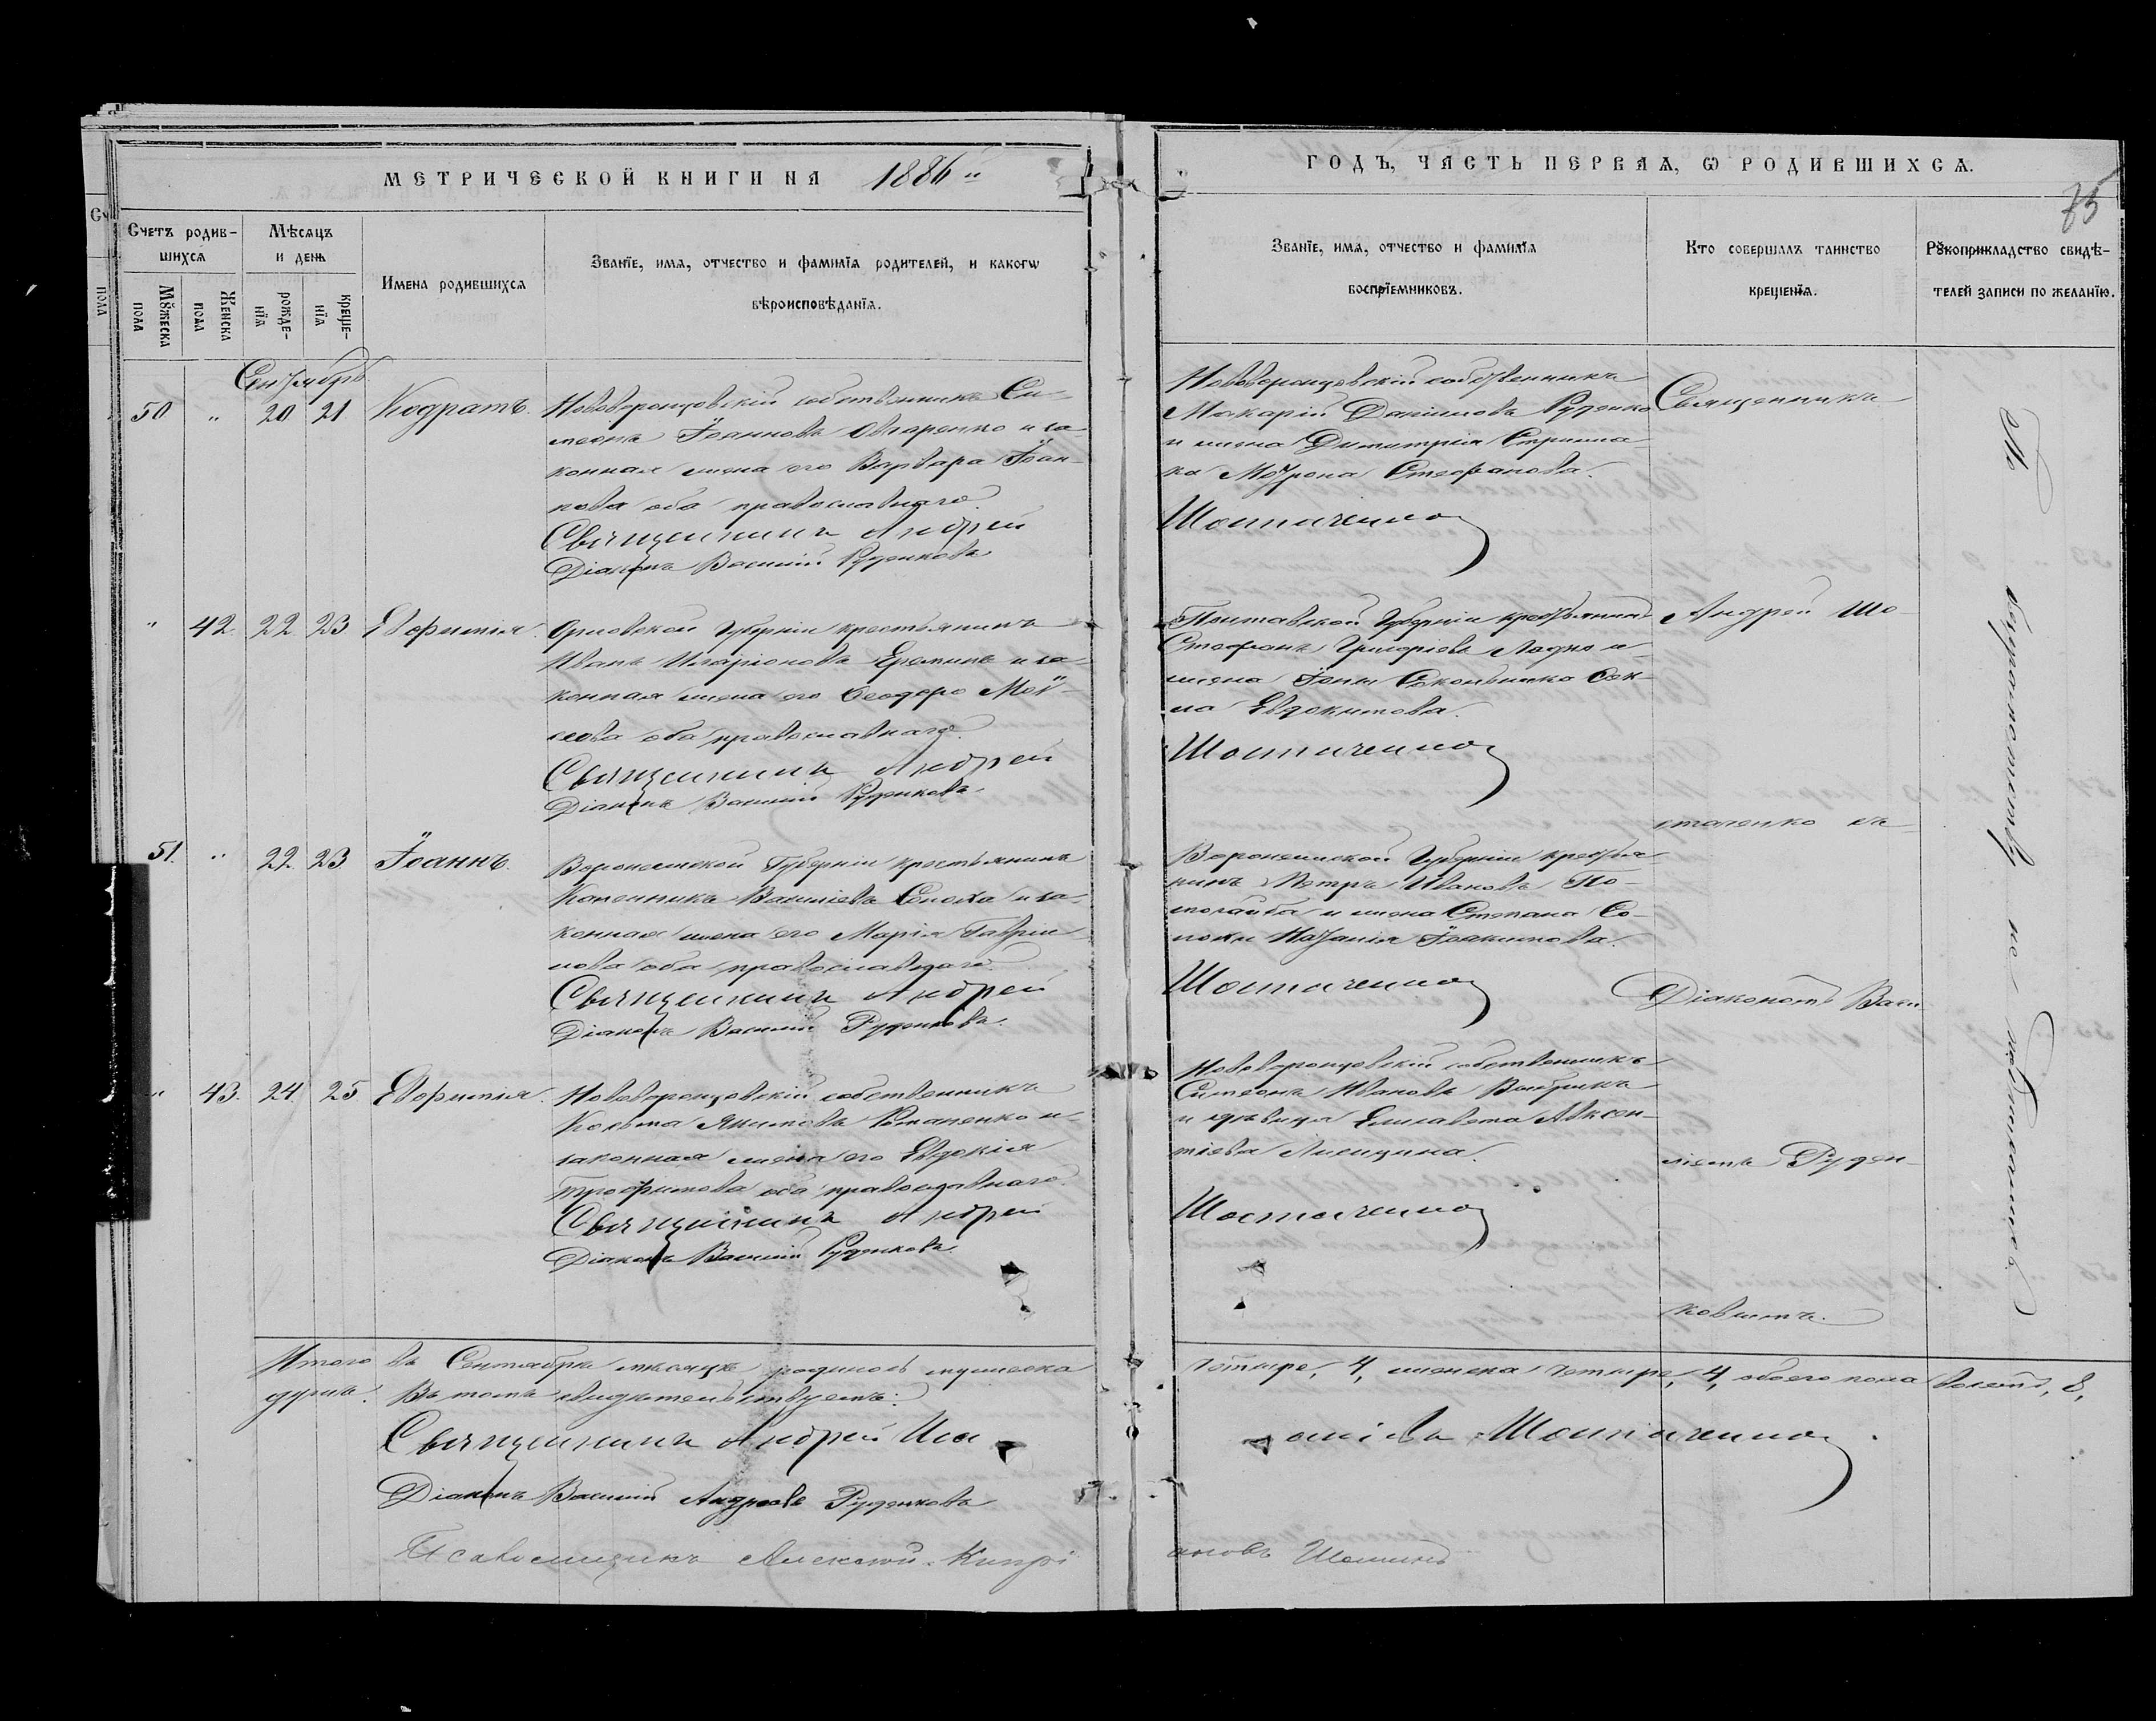 МЕТРИЧЕСКОЙ КНИГИ НА 1886й
ГОДЪ, ЧАСТЬ ПЕРВАЯ, Ѡ РОДИВШИХСЯ.
75
Счетъ родив-
шихся
Мѣсяцъ
и день
Мꙋжеска
пола
Женска
пола
рожде-
нїя
креще-
нїя
Имена родившихся
Званїе, имя, отчество и фамилїя родителей, и какогѡ
вѣроисповѣданїя.
Званїе, имя, отчество и фамилїя
воспрїемниковъ.
Кто совершалъ таинство
крещенїя.
Рꙋкоприкладство свидѣ-
телей записи по желанїю.
Сентябрь
50 " 20 21 Кодратъ.
Нововоронцовскій собственникъ Си-
меонъ Іоанновъ Овчаренко и за-
конная жена его Варвара Іоан-
нова оба православнаго.
Священникъ Андрей
Діаконъ Василій Руденковъ
Нововоронцовскій собственникъ
Макарій Даниловъ Руденко
и жена Димитрія Стрижа-
ка Матрона Стефанова.
Шостаченко
Священникъ
" 42. 22 23 Евфимія.
Орловской Губерніи крестьянинъ
Иванъ Иларіоновъ Ереминъ и за-
конная жена его Феодора Мои-
сеова оба православнаго.
Священникъ Андрей
Діаконъ Василій Руденковъ
Полтавской Губерніи крестьянинъ
Стефанъ Григоріевъ и
жена Іоны Фек-
ла Евдокимова.
Шостаченко
Андрей Шо-
стаченко съ
51. " 22. 23 Іоаннъ.
Воронежской Губерніи крестьянинъ
Василіевъ и за-
конная жена его Марія Гаврии-
лова оба православнаго.
Священникъ Андрей
Діаконъ Василій Руденковъ.
Воронежской Губерніи крестья-
нинъ Петръ Ивановъ
и жена Степана
Наталія Іоакимова.
Шостаченко
Діакономъ Васи-
" 43. 24. 25 Евфимія.
Нововоронцовскій собственникъ
Козьма Якимовъ Романенко и
законная жена его Евдокія
Трофимова оба православнаго.
Священникъ Андрей
Діаконъ Василій Руденковъ.
Нововоронцовскій собственникъ
Симеонъ Ивановъ
и дѣвица Елисавета Авксен-
тіева Лисицина.
Шостаченко
ліемъ Руден-
ковымъ.
По безграмотству не подписались
Итого въ Сентябрѣ мѣсяцѣ родилось мужеска
четыре, 4, женска четыре, 4, обоего пола восемь, 8,
душъ. Въ томъ свидѣтельствуемъ:
Священникъ Андрей Шостаченко
Діаконъ Василій Андреевъ Руденковъ
Псаломщикъ Алексѣй Кипрі
ановъ